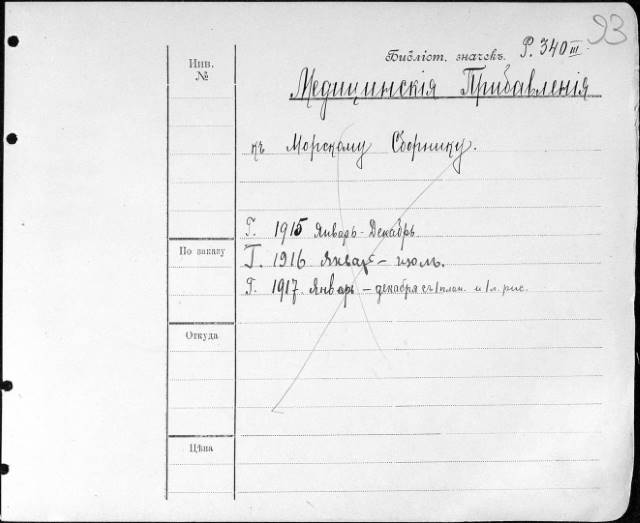 93
Библіот. значекъ. Р. 340 III
Инв.
№
Медицинскія Прибавленія
къ Морскому Сборнику.
Г. 1915 Январь - Декабрь
По заказу
Г. 1916 Январь - июль.
Г. 1917 Январь - декабря съ 1 план. и 1 л. рис.
Откуда
Цѣна